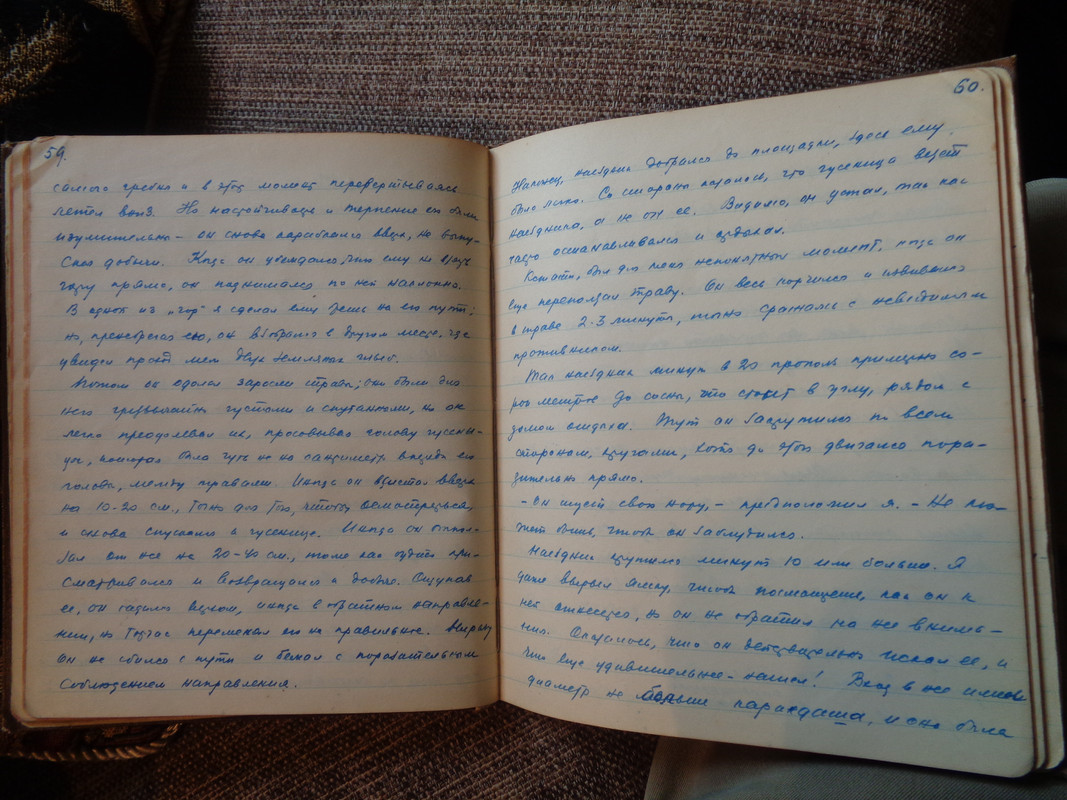 59.
самого гребня и в этот момент перевертываясь
летел вниз. Но настойчивость и терпение его были
изумительны – он снова карабкался вверх, не выпу-
ская добычи. Когда он убеждался, что ему не взять
гору прямо, он поднимался по ней наклонно.
В одной из „гор" я сделал ему на его пути;
но, пренебрегая ею, он взобрался в другом месте, где
увидел проход меж двух земляных глыб.
Потом он одолел заросли травы; они были для
него чрезвычайно густыми и спутанными, но он
легко преодолевал их, просовывая голову гусени-
цы, которая была чуть не на сантиметр впереди его
головы, между травами. Иногда он взлетал вверх
на 10-20 см., точно для того, чтобы осмотреться,
и снова спускался к гусенице. Иногда он отпол-
зал от нее на 20-40 см., тоже как будто при-
сматривался и возвращался к добыче. Ощупав
ее, он садился верхом, иногда в обратном направле-
нии, но тотчас перемежал его на правильное.
он не сбился с пути и бежал с поразительным
соблюдением направления.
60.
Наконец, наездник добрался до площадки, здесь ему
было легко. Со стороны казалось, что гусеница везет
наездника, а не он ее. Видимо, он устал, так как
часто останавливался и отдыхал.
Кстати, был для меня непонятный момент, когда он
еще переползал траву. Он весь корчился и извивался
в траве 2-3 минуты, точно сражался с невидимым
противником.
Так наездник минут в 20 прополз примерно со-
рок метров до сосны, что стоит в углу, рядом с
домом отдыха. Тут он закружился по всем
сторонам, кругами, хотя до этого двигался пора-
зительно прямо.
– Он ищет свою нору, – предположил я. – Не мо-
жет быть, чтобы он заблудился.
Наездник кружился минут 10 или больше. Я
даже вырыл ямку, чтобы посмотреть, как он к
ней отнесется, но он не обратил на нее внима-
ния. Оказалось, что он действительно искал ее, и
что еще удивительнее – нашел! Вход в нее имел
диаметр не больше карандаша, и она была